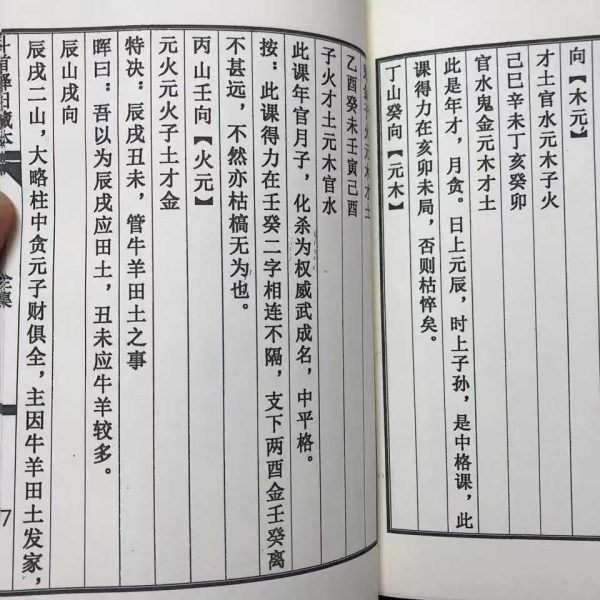 向【木元】
才土官水元木子火
己巳辛未丁亥癸卯
官水鬼金元木才土
此是年才，月贪。日上元辰，时上子孙，是中格课，此
课得力在亥卯未局，否则枯悴矣。
丁山癸向【元木】
元木才土
乙酉癸未壬寅己酉
子火才土元木官水
此课年官月子，化杀为权威武成名，中平格。
按：此课得力在壬癸二字相连不隔，支下两酉金壬癸离
不甚远，不然亦枯槁无为也。
丙山壬向【火元】
元火元火子土才金
特决：辰戌丑未，管牛羊田土之事
晖曰：吾以为辰戌应田土，丑未应牛羊较多。
辰山戌向
辰戌二山，大略柱中贪元子财俱全，主因牛羊田土发家，
斗首择日藏本
全集
7